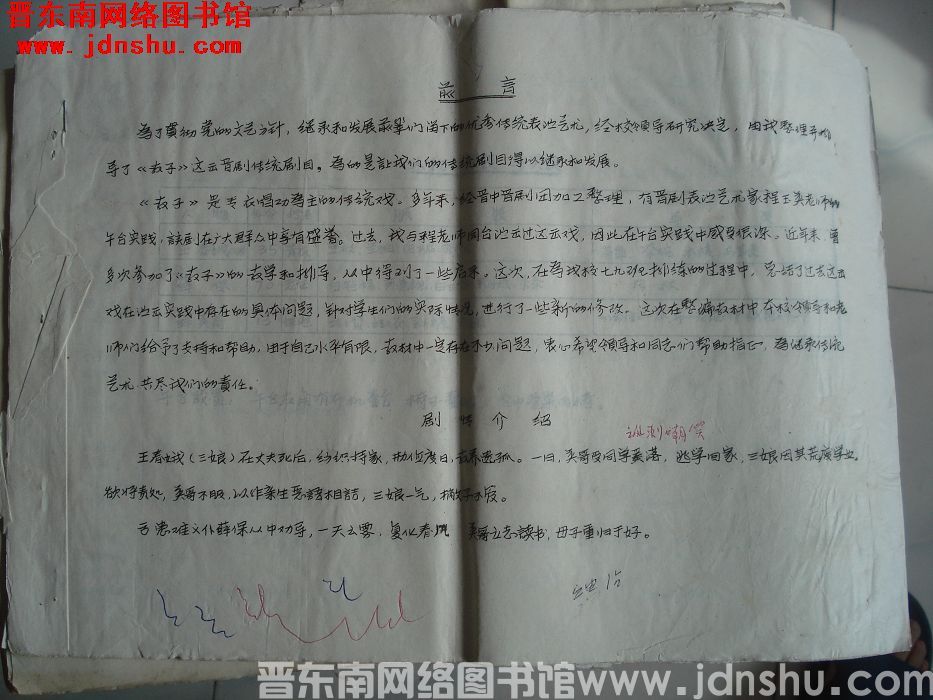 晋东南网络图书馆
www.jdnshu.com
前言
为了贯彻党的文艺方针，继承和发展前辈们留下的优秀传统表演艺术，经校领导研究决定，由我整理并排
导了《教子》这出晋剧传统剧目。为的是让我们的传统剧目得以继承和发展。
《教子》是专衣唱功为主的传统戏。多年来，经晋中晋剧团加工整理，有晋剧表演艺术家程玉英老师的
午台实践，该剧在广大群众中享有盛誉。过去，我与程老师同台演出过这出戏，因此在午台实践中感受很深。近年来曾
多次参加了《教子》的教学和排导，从中得到了一些启来。这次，在为戏校七九班排练的过程中，总结了过去这出
戏在演出实践中存在的具体问题，针对学生们的实际情况，进行了一些新的修改。这次在整编教材中本校领导和老
师们给予了支持和帮助，由于自己水平有限，教材中一定存在不少问题，衷心希望领导和同志们帮助指正，为继承传统
艺术共尽我们的责任。
剧情介绍
讽嘲笑
王春娥（三娘）在丈夫死后，纺织持家，勤俭度日，去养遗孤。一日，英哥受同学奚落，逃学回家，三娘因其荒废学业
欲将责处，英哥不服，以非亲生恶语相詰，三娘一气，
患难义仆薛保从中劝导，一天云雾，复化春风 英哥立志读书，母子重归于好。
晋东南网络图书馆www.jdnshu.com